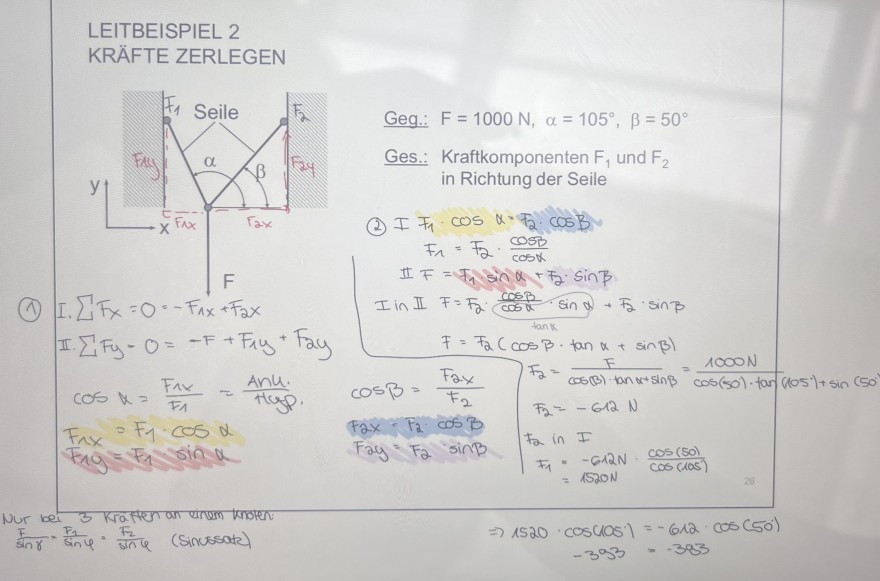 LEITBEISPIEL 2
KRÄFTE ZERLEGEN
F1
Seile
F2
F1y
α
β
F2y
y
x
F1x
F2x
F
Geg.: F = 1000 N, α = 105°, β = 50°
Ges.: Kraftkomponenten F₁ und F₂
in Richtung der Seile
① I. ΣFx = 0 = -F1x + F2x
II. ΣFy = 0 = -F + F1y + F2y
cos α = F1x / F1 = Ank. / Hyp.
F1x = F1 cos α
F1y = F1 sin α
cos β = F2x / F2
F2x = F2 cos β
F2y = F2 sin β
② I F1 · cos α = F2 · cos β
F1 = F2 · cosβ / cosα
II F = F1 sin α + F2 · sin β
I in II F = F2 · cosβ / cosα · sin α + F2 · sin β
tan α
F = F2 (cos β · tan α + sin β)
F2 = F / cos(β) · tan α + sin β = 1000 N / cos(50) · tan (105°) + sin (50°)
F2 = - 612 N
F2 in I
F1 = -612N · cos(50) / cos(105)
= 1520N
26
Nur bei 3 Kräften an einem Knoten:
F / sin γ = F1 / sin φ = F2 / sin φ (Sinussatz)
⇒ 1520 · cos(105°) = -612 · cos(50°)
-393 = -393